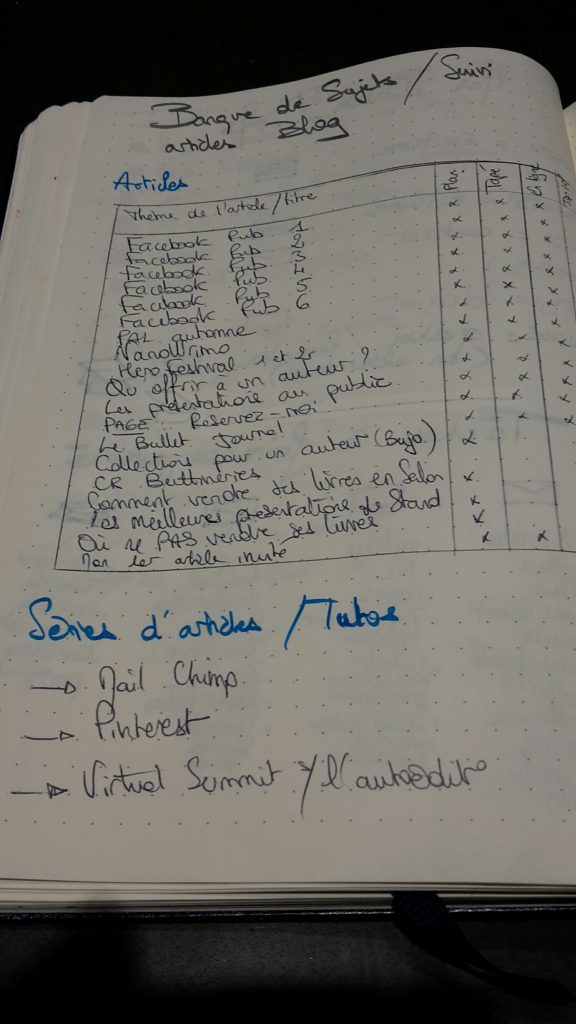 Banque de Sujets / Suivi
articles Blog
Articles
Thème de l'article / titre Plan Tapé
Facebook Pub 1 x x x
Facebook Pub 2 x x x
Facebook Pub 3 x x x
Facebook Pub 4 x x x
Facebook Pub 5 x x x
Facebook Pub 6 x x x
PAL automne
NanoWrimo
Hero Festival 1 et 2
Qu'offrir à un auteur ?
Les présentations au public
PAGE Reservez-moi
Le Bullet Journal
Collections pour un auteur (Bujo)
CR
Comment vendre des livres en Salon
Les meilleures presentations de Stand
Où ne PAS vendre ses livres
Mon 1er article invité
Séries d'articles / Tutos
→ Mail Chimp
→ Pinterest
→ Virtual Summit l'autoédito